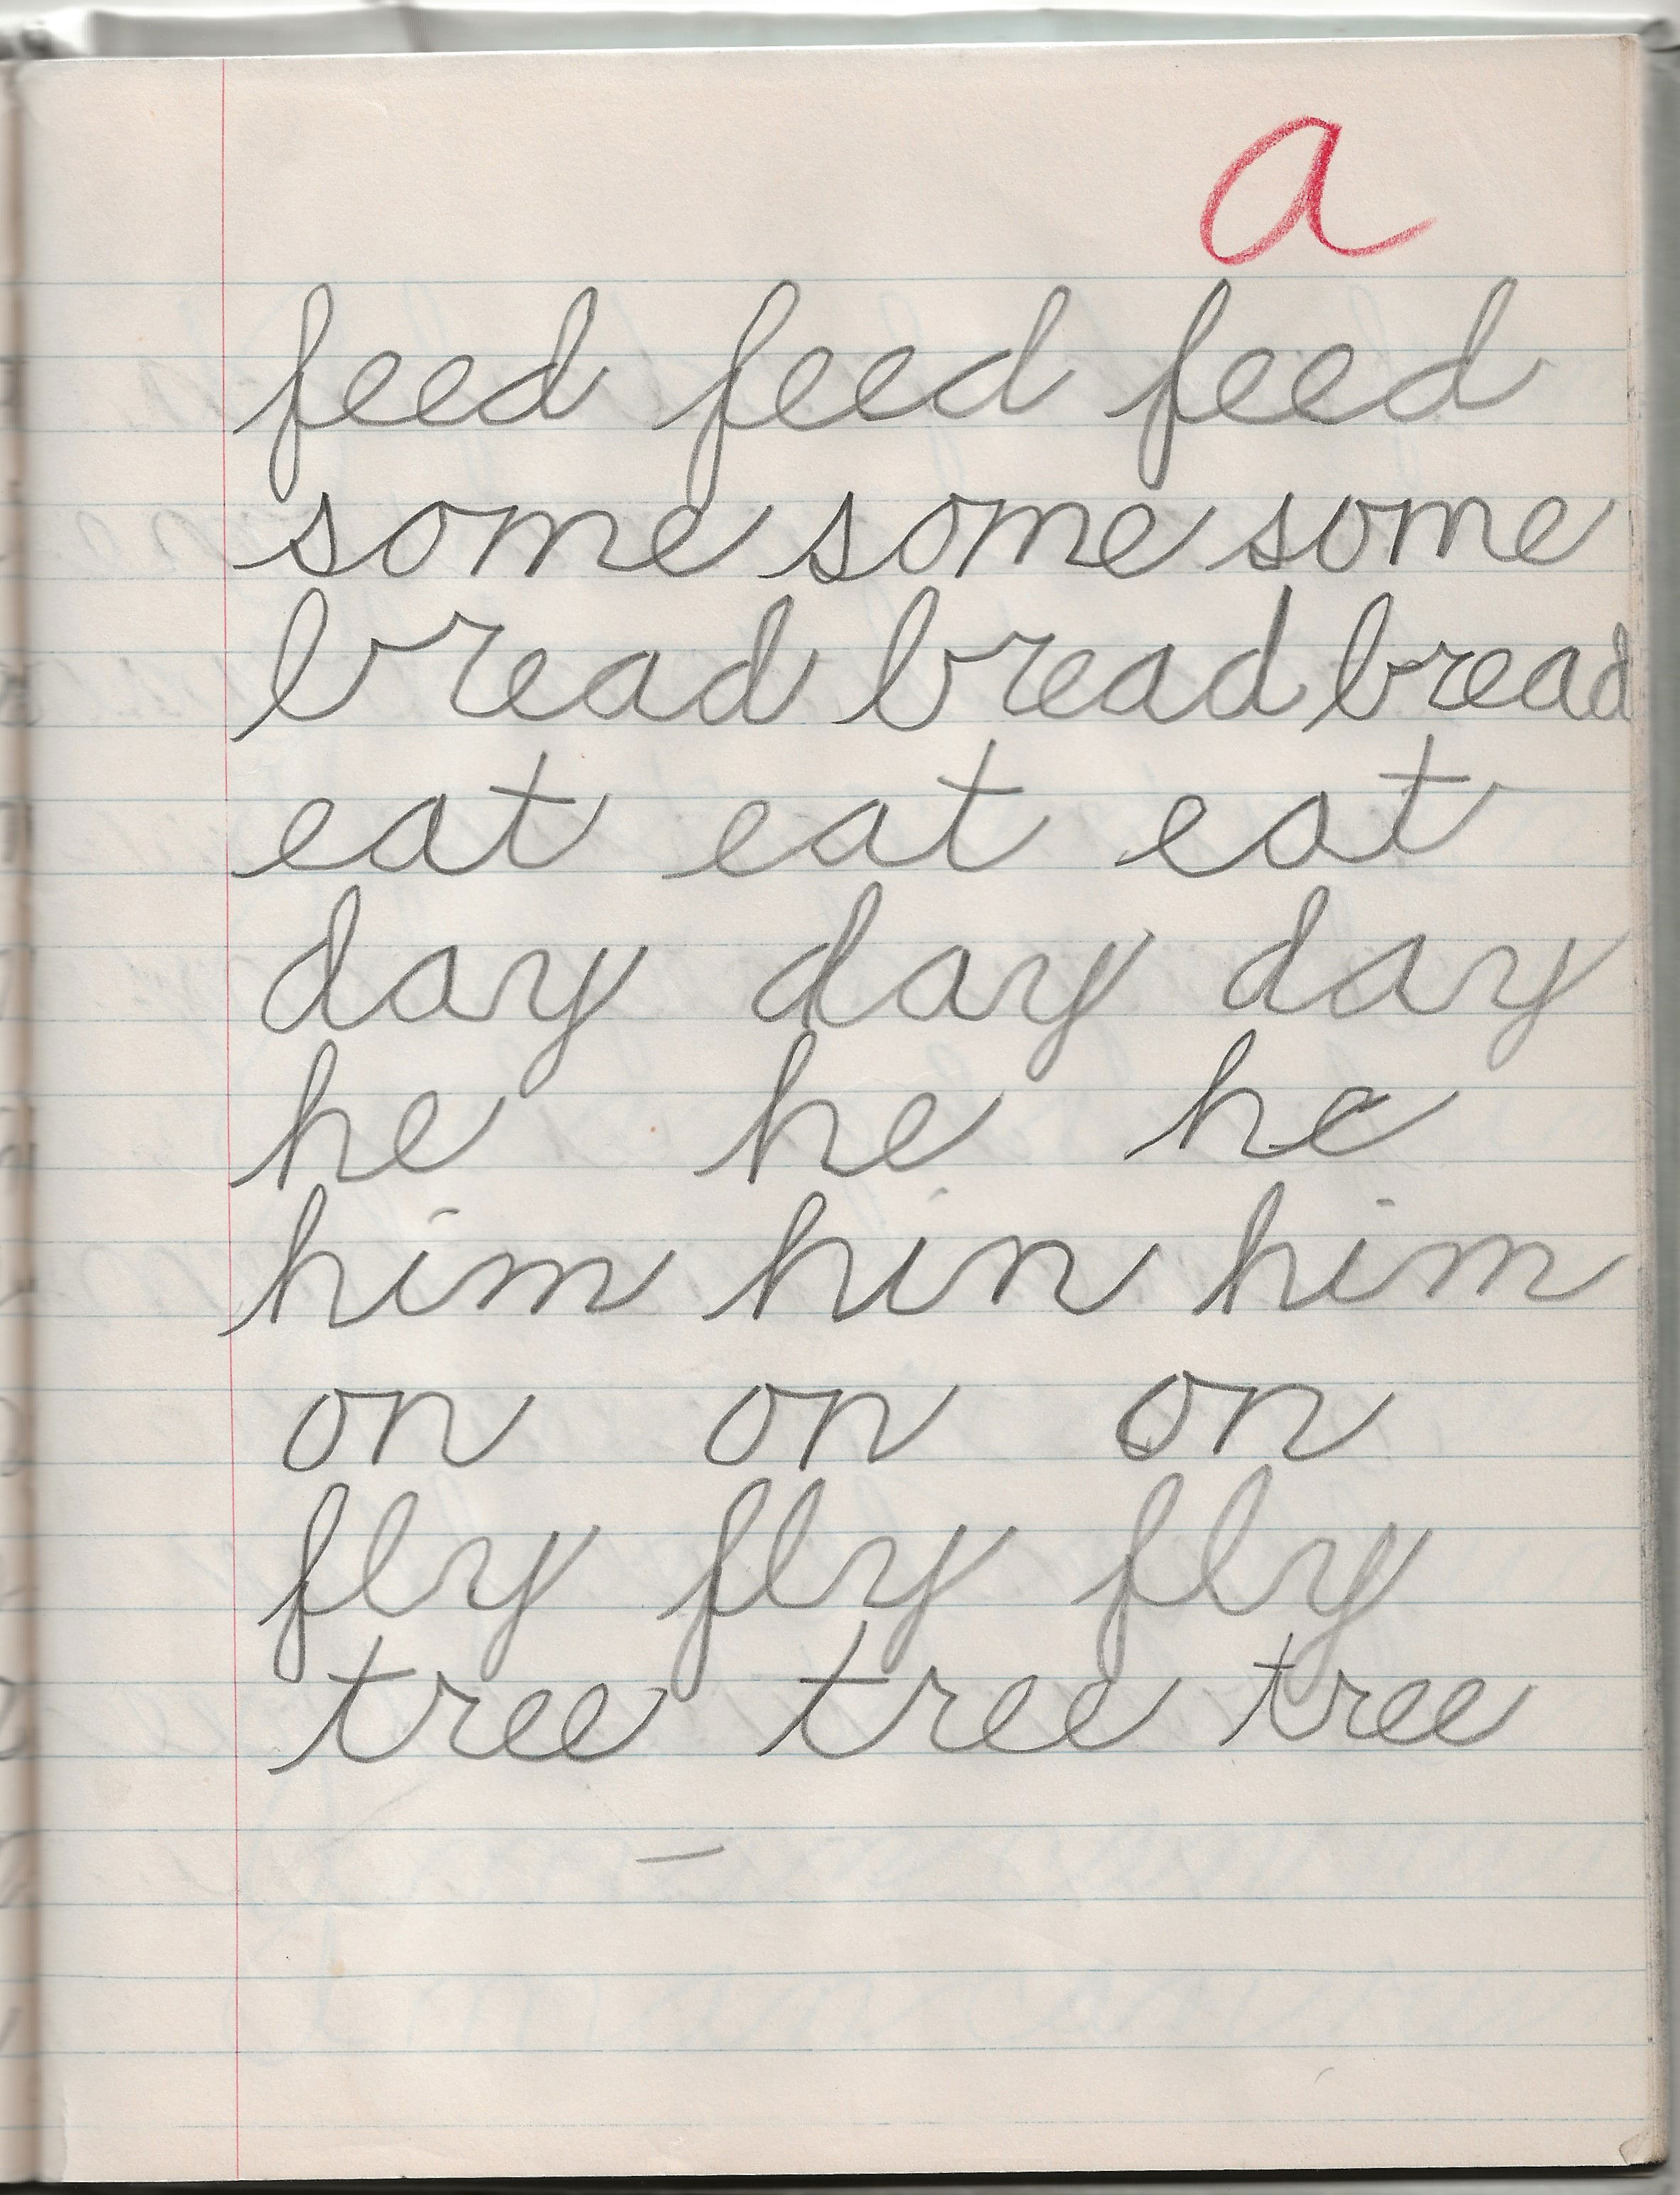 a
feed feed feed
some some some
bread bread bread
eat eat eat
day day day
he he he
him hin him
on on on
fly fly fly
tree tree tree